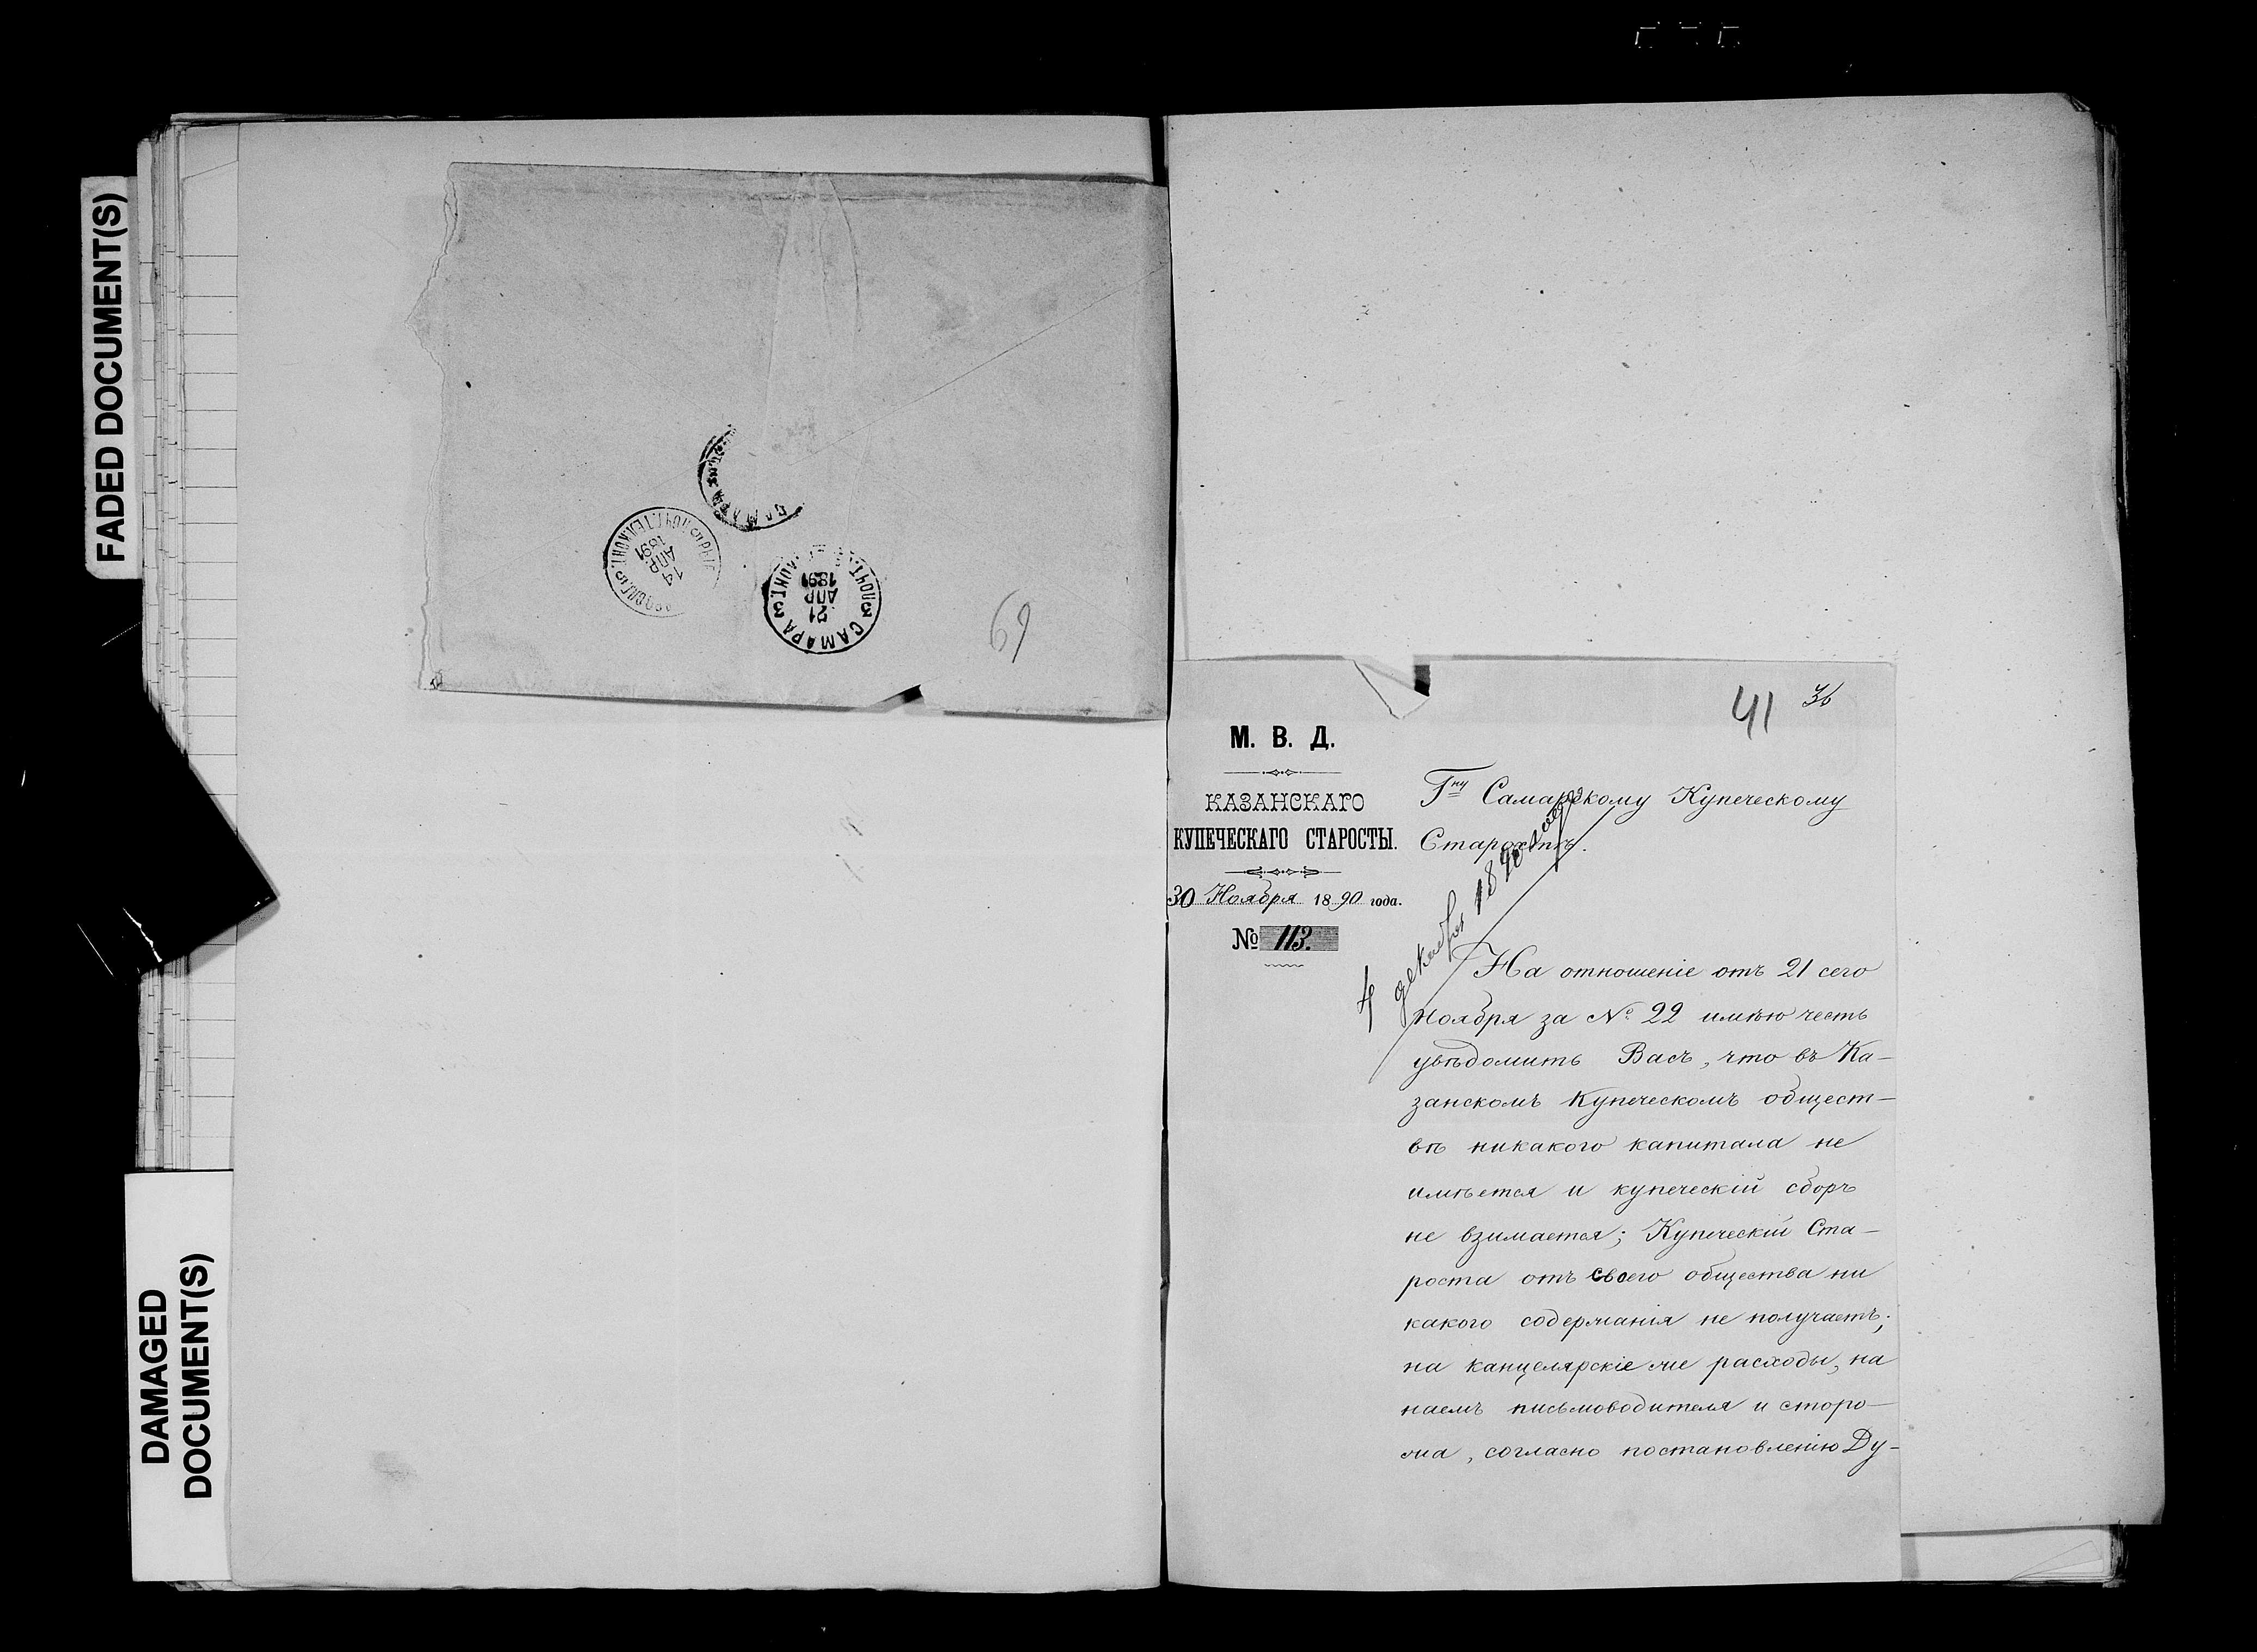 FADED DOCUMENT(S)
DAMAGED
DOCUMENT(S)
14
АПР
1891
САМАРА
21
АПР
1891
69
41 36
М. В. Д.
КАЗАНСКАГО
КУПЕЧЕСКАГО СТАРОСТЫ.
30 Ноября 1890 года.
№ 113.
Гну Самарскому Купеческому
Старостѣ.
4 декабря 1890 года
На отношеніе отъ 21 сего
ноября за № 22 имѣю честь
увѣдомить Васъ, что въ Ка-
занскомъ Купеческомъ общест-
вѣ никакого капитала не
имѣется и купеческій сборъ
не взимается; Купеческій Ста-
роста отъ своего общества ни
какого содержанія не получаетъ;
на канцелярскіе же расходы, на
наемъ письмоводителя и сторо-
жа, согласно постановленію Ду-